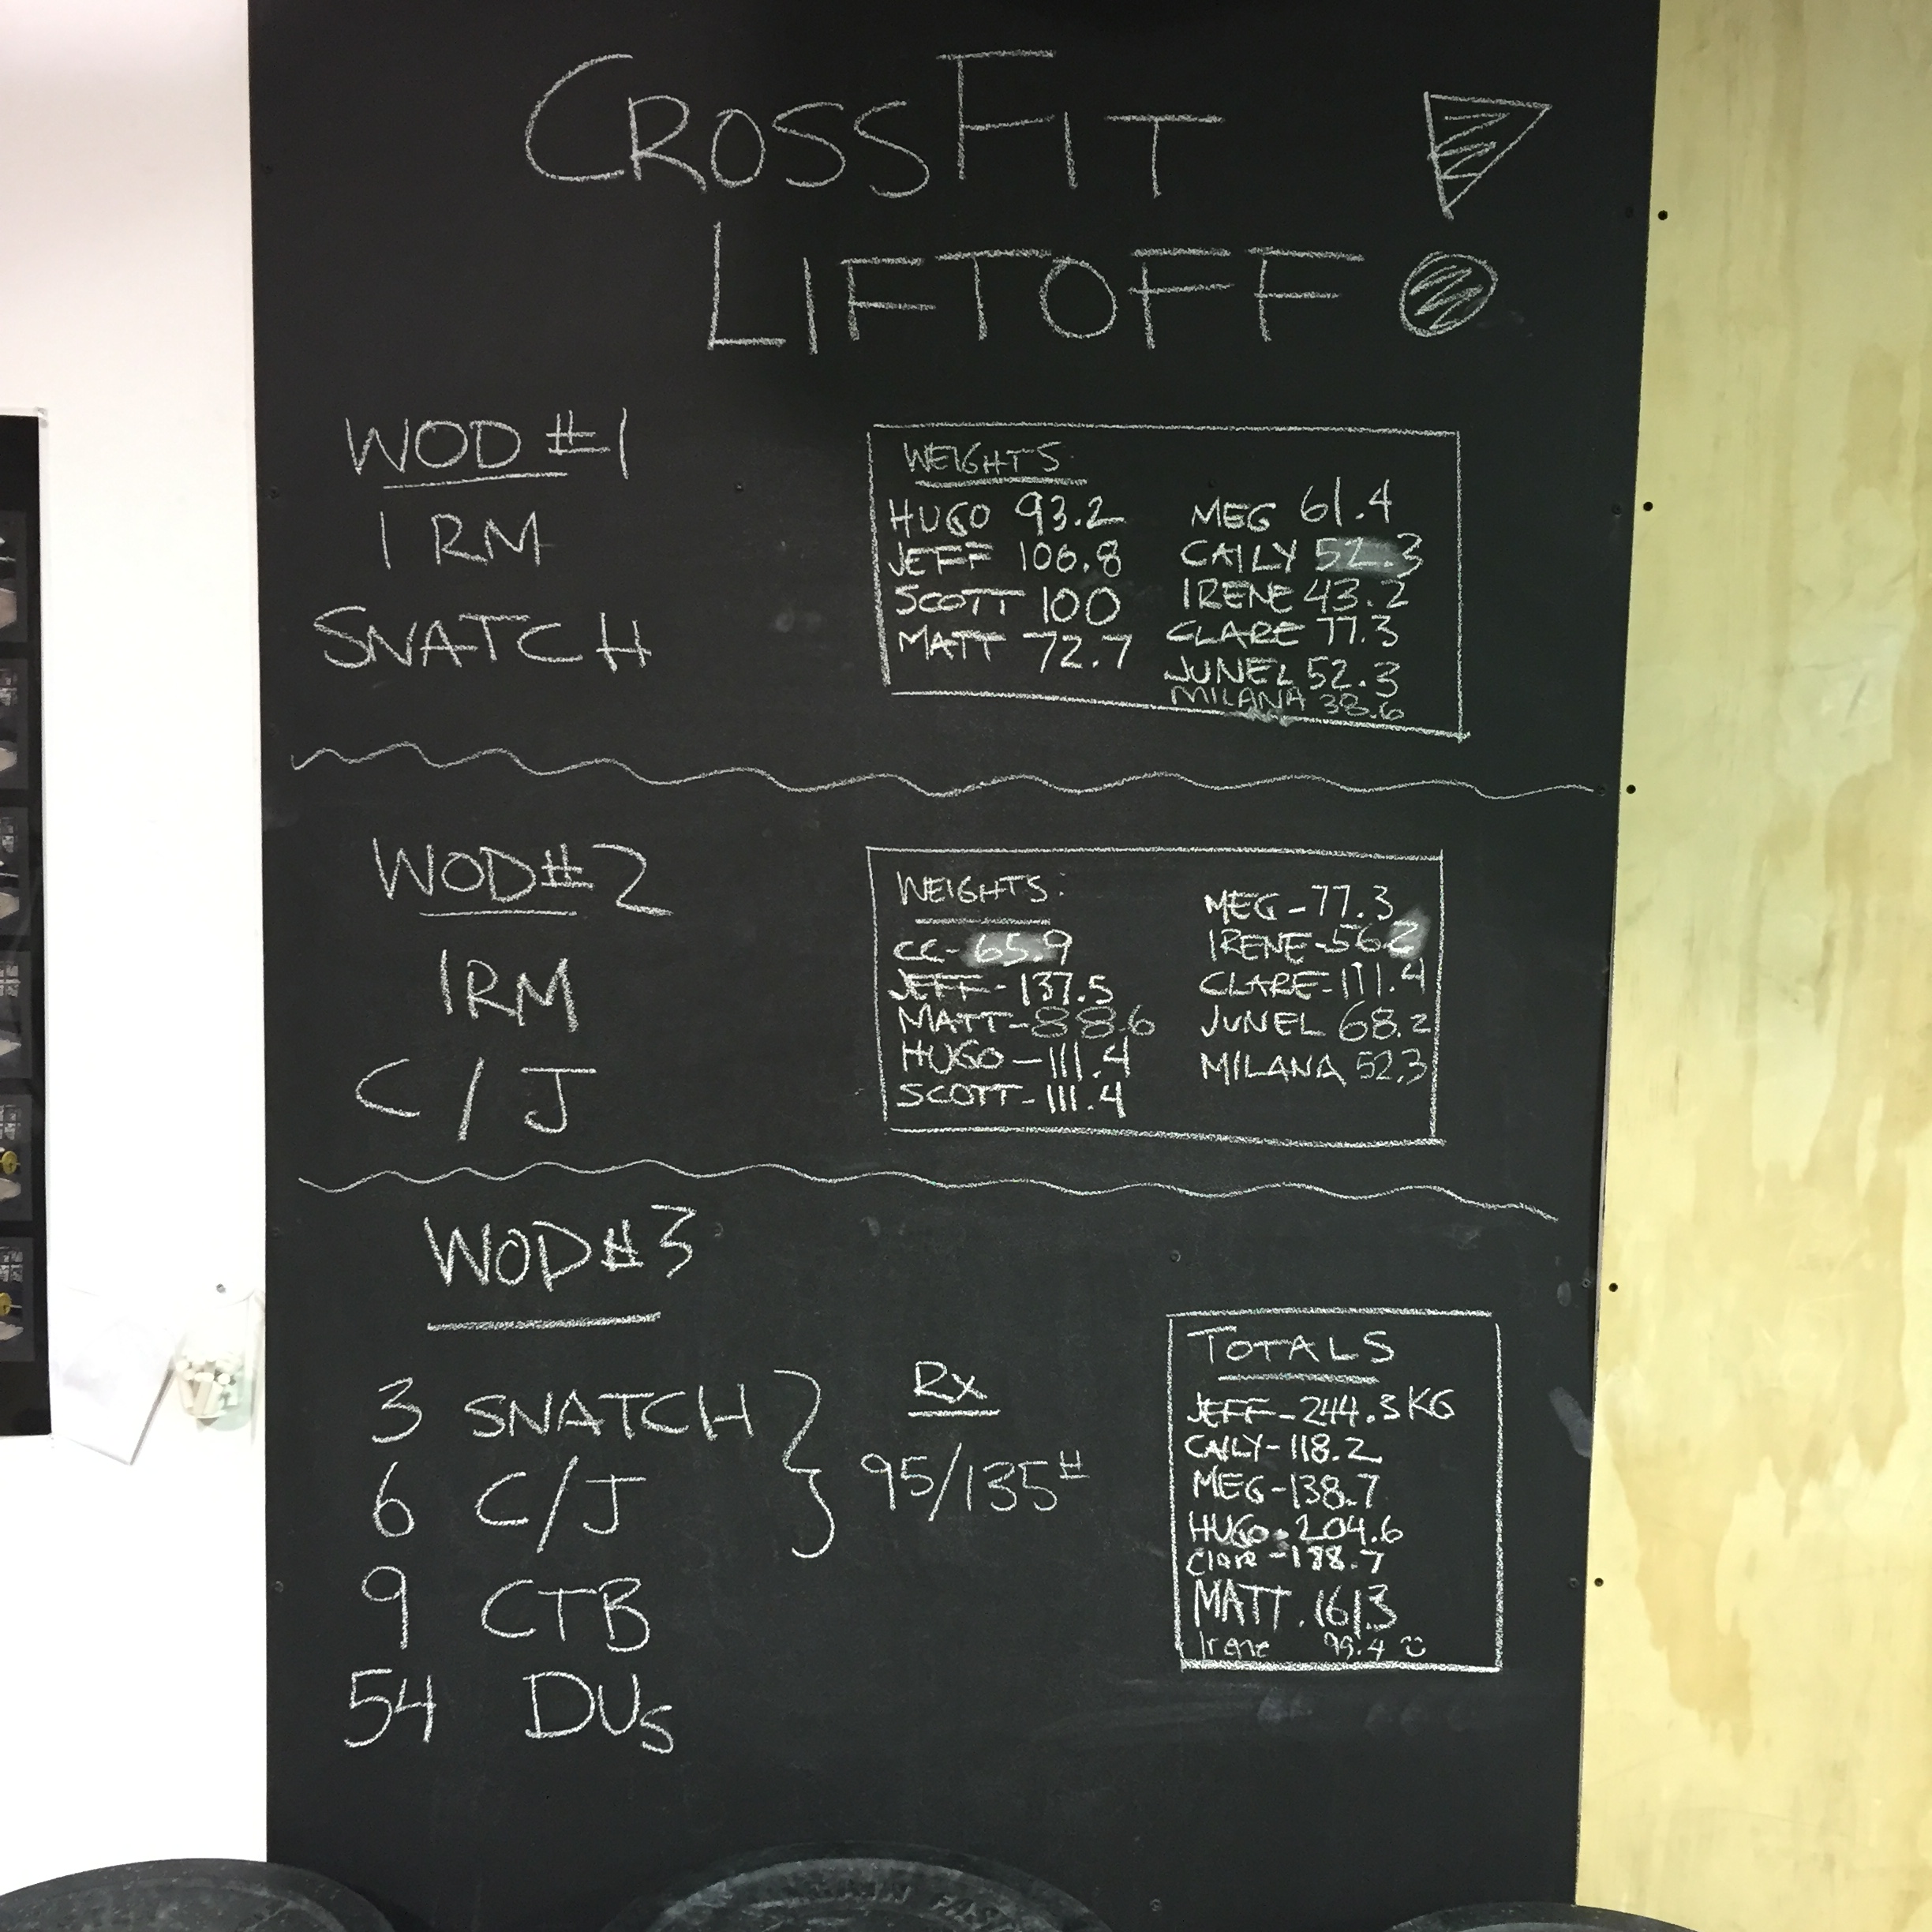 CROSSFIT
LIFTOFF
WOD #1
1 RM
SNATCH
WEIGHTS
HUGO 93.2
JEFF 106.8
SCOTT 100
MATT 72.7
MEG 61.4
CAILY 52.3
IRENE 43.2
CLARE 77.3
JUNEL 52.3
MILANA 38.6
WOD #2
1RM
C/J
WEIGHTS:
CC - 65.9
JEFF - 137.5
MATT - 88.6
HUGO - 111.4
SCOTT - 111.4
MEG - 77.3
IRENE - 56.2
CLARE - 111.4
JUNEL 68.2
MILANA 52.3
WOD #3
3 SNATCH
6 C/J
9 CTB
54 DUs
Rx
95/135#
TOTALS
JEFF - 244.3 KG
CAILY - 118.2
MEG - 138.7
HUGO - 204.6
Clare - 188.7
MATT . 161.3
Irene 99.4